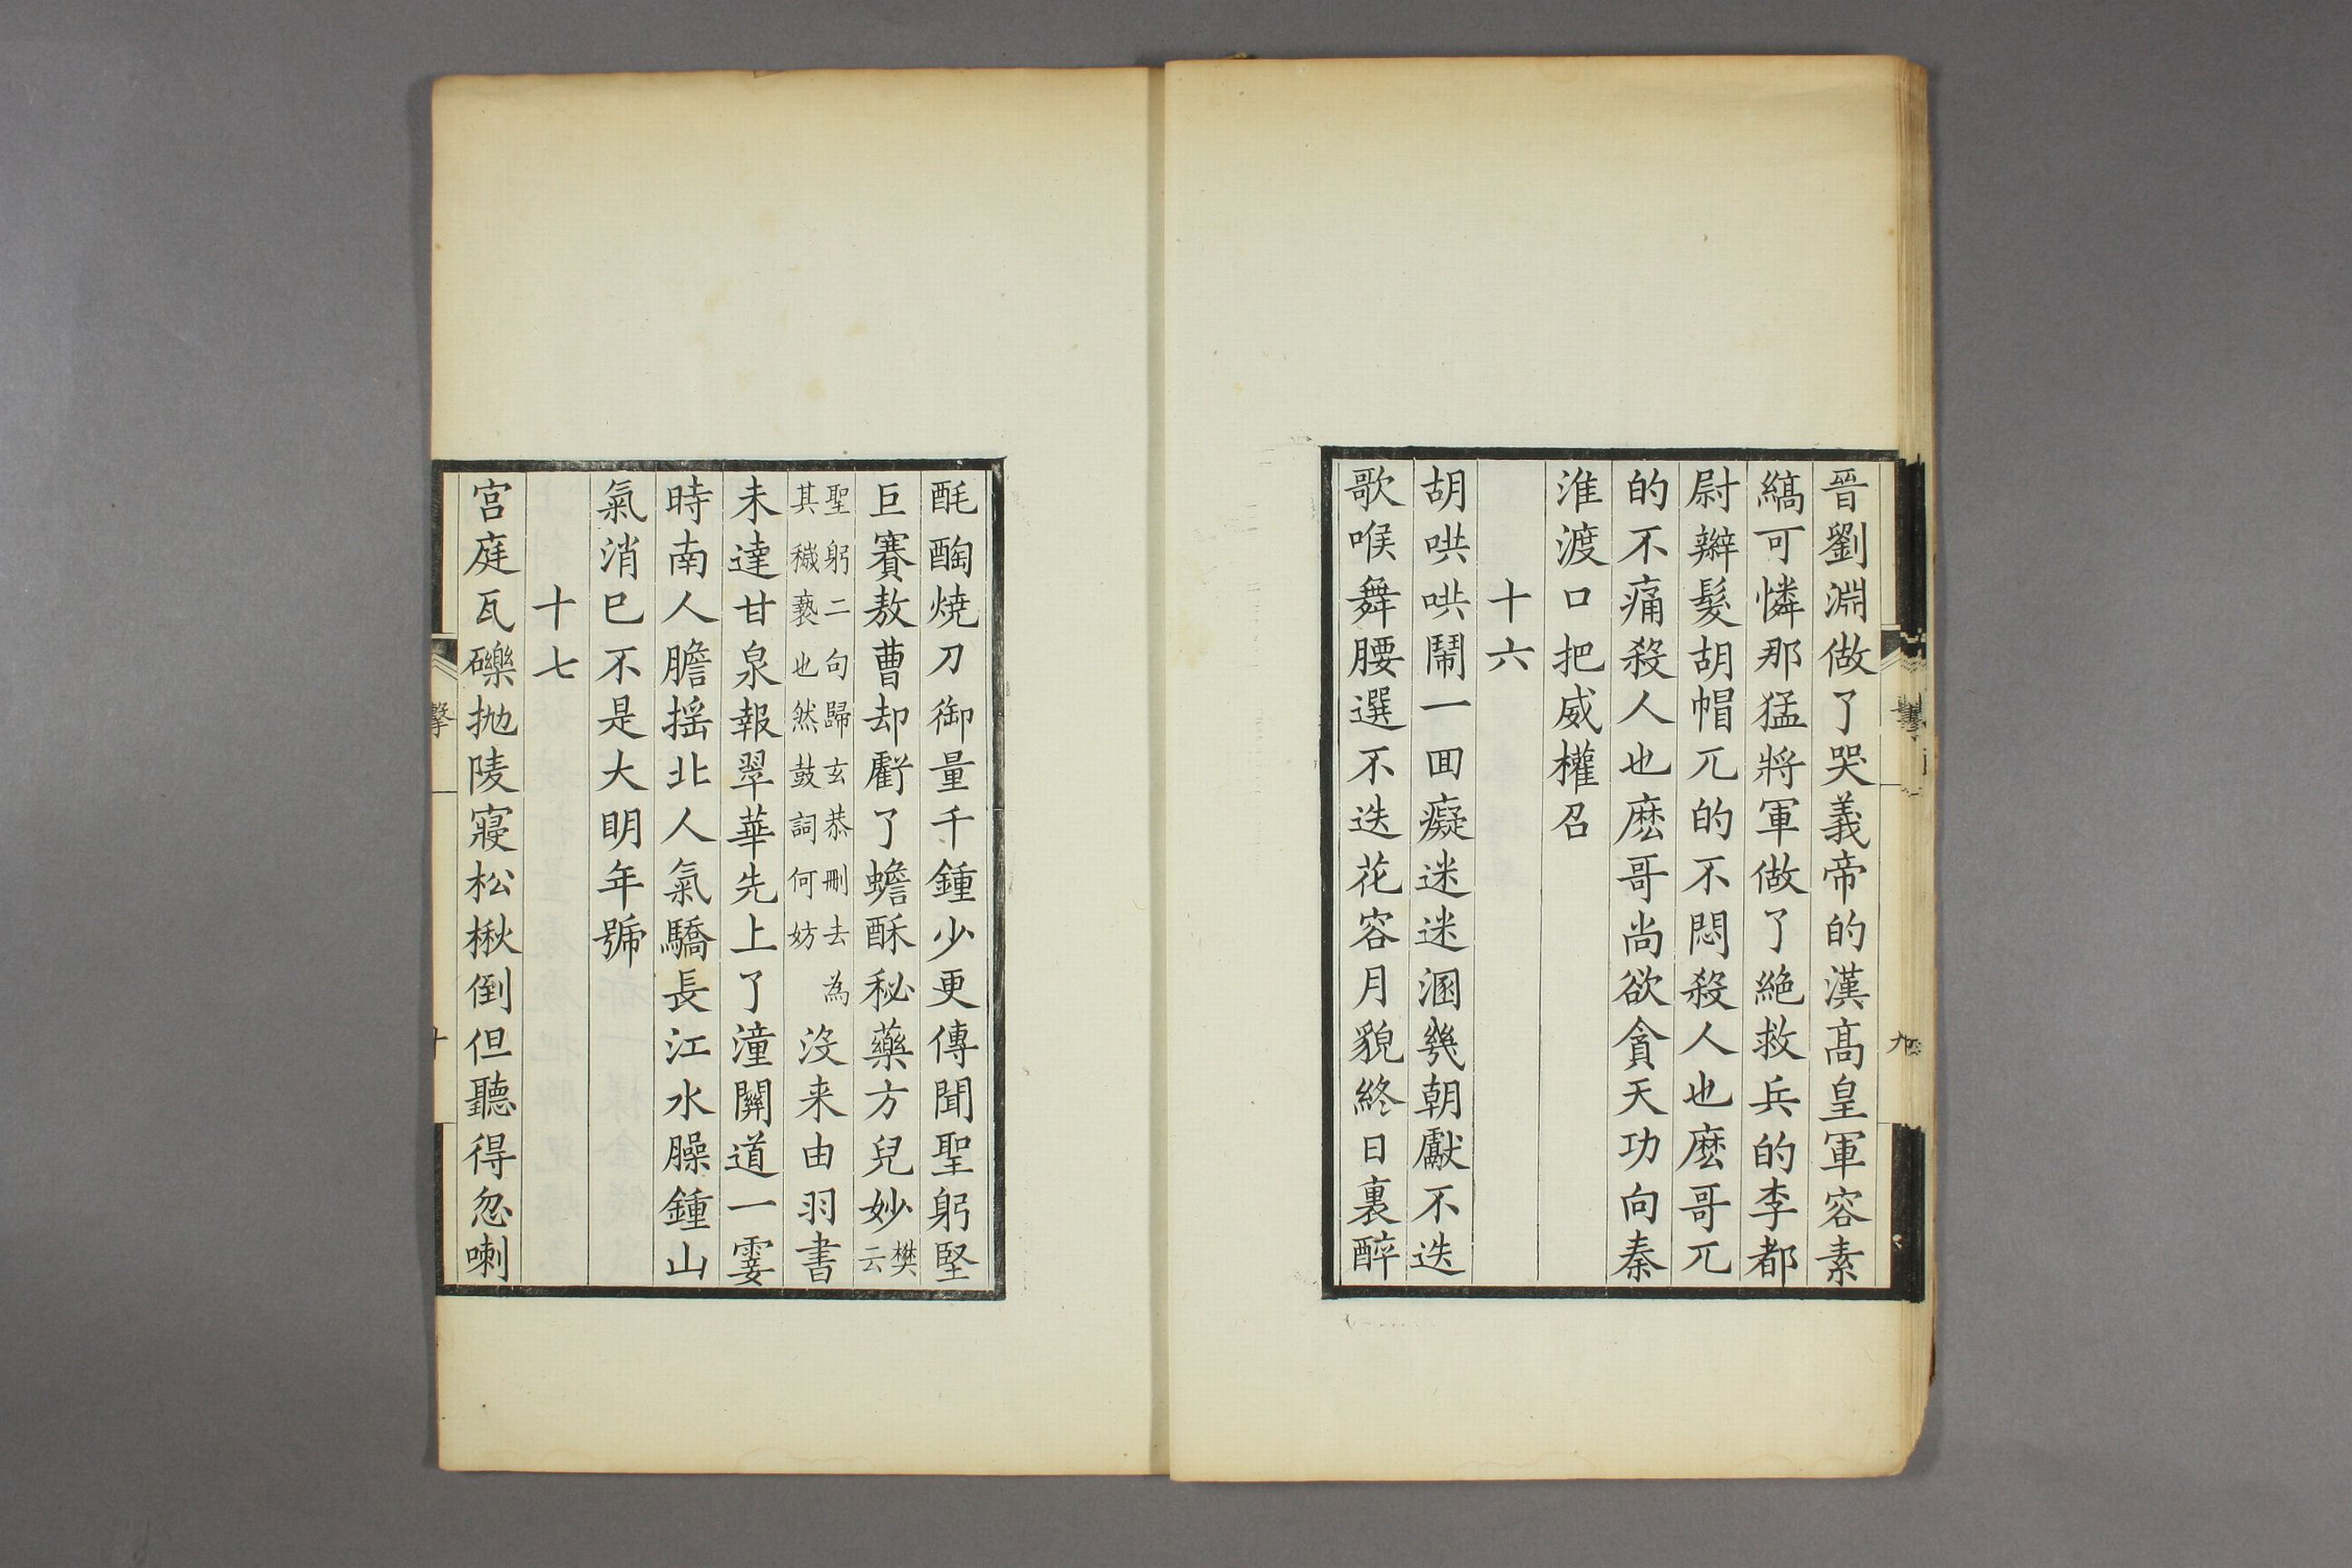 晉劉淵做了哭義帝的漢髙皇軍容素
縞可憐那猛將軍做了絶救兵的李都
尉辮髮胡帽兀的不悶殺人也麽哥兀
的不痛殺人也麽哥尚欲貪天功向秦
淮渡口把威權召
十六
胡哄哄鬧一回癡迷迷溷幾朝獻不迭
歌喉舞腰選不迭花容月貌終日裏醉
酕醄燒刀御量千鍾少更傳聞聖躬堅
巨賽敖曹却虧了蟾酥秘藥方兒妙樊云
聖躬二句歸玄恭刪去為
其穢褻也然鼓詞何妨
沒来由羽書
未達甘泉報翠華先上了潼關道一霎
時南人膽揺北人氣驕長江水臊鍾山
氣消巳不是大明年號
十七
宮庭瓦礫抛陵寢松楸倒但聽得忽喇
擊
十
九